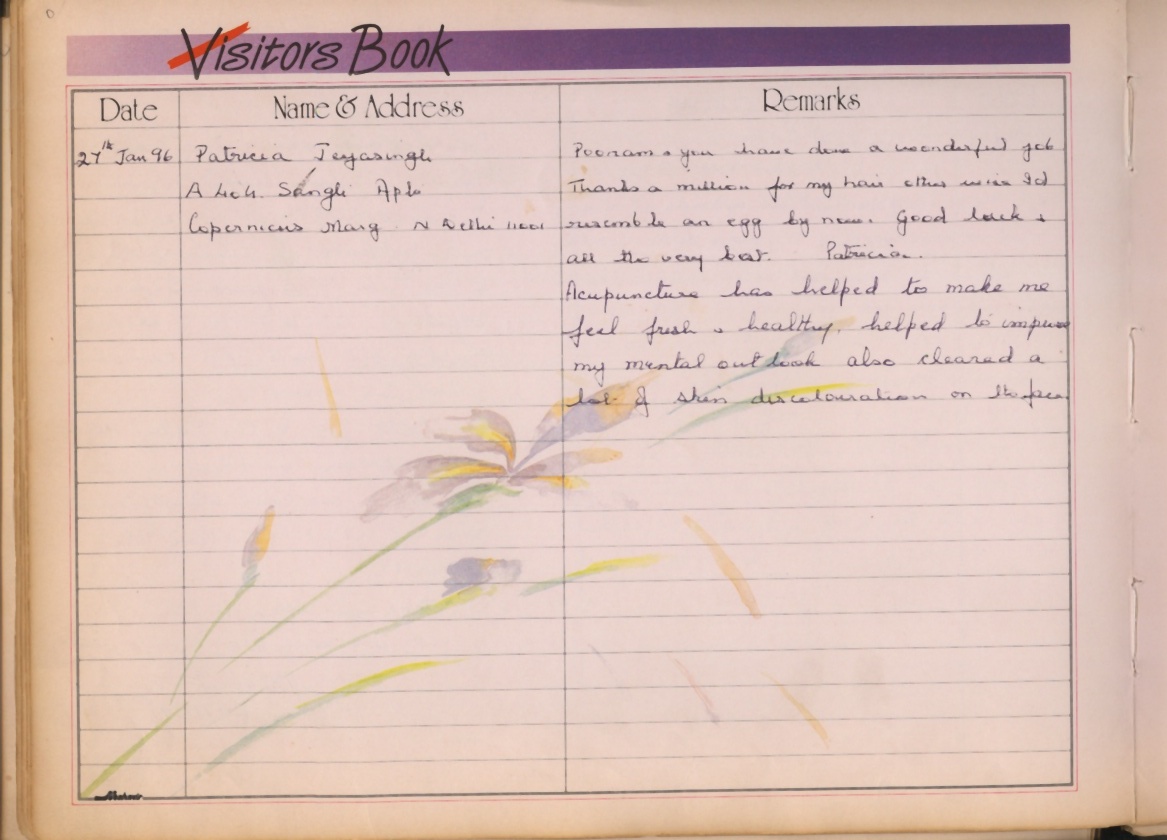 Visitors Book
Date Name & Address Remarks
27th Jan 96 Patricia Jeyasingh Poonam, you have done a wonderful job
Singh Apts Thanks a million for my hair other wise I'd
Copernicus Marg N Delhi 110001 resemble an egg by now. Good luck &
all the very best. Patricia.
Acupuncture has helped to make me
feel fresh & healthy, helped to improve
my mental outlook also cleared a
lot of skin discolouration on the face